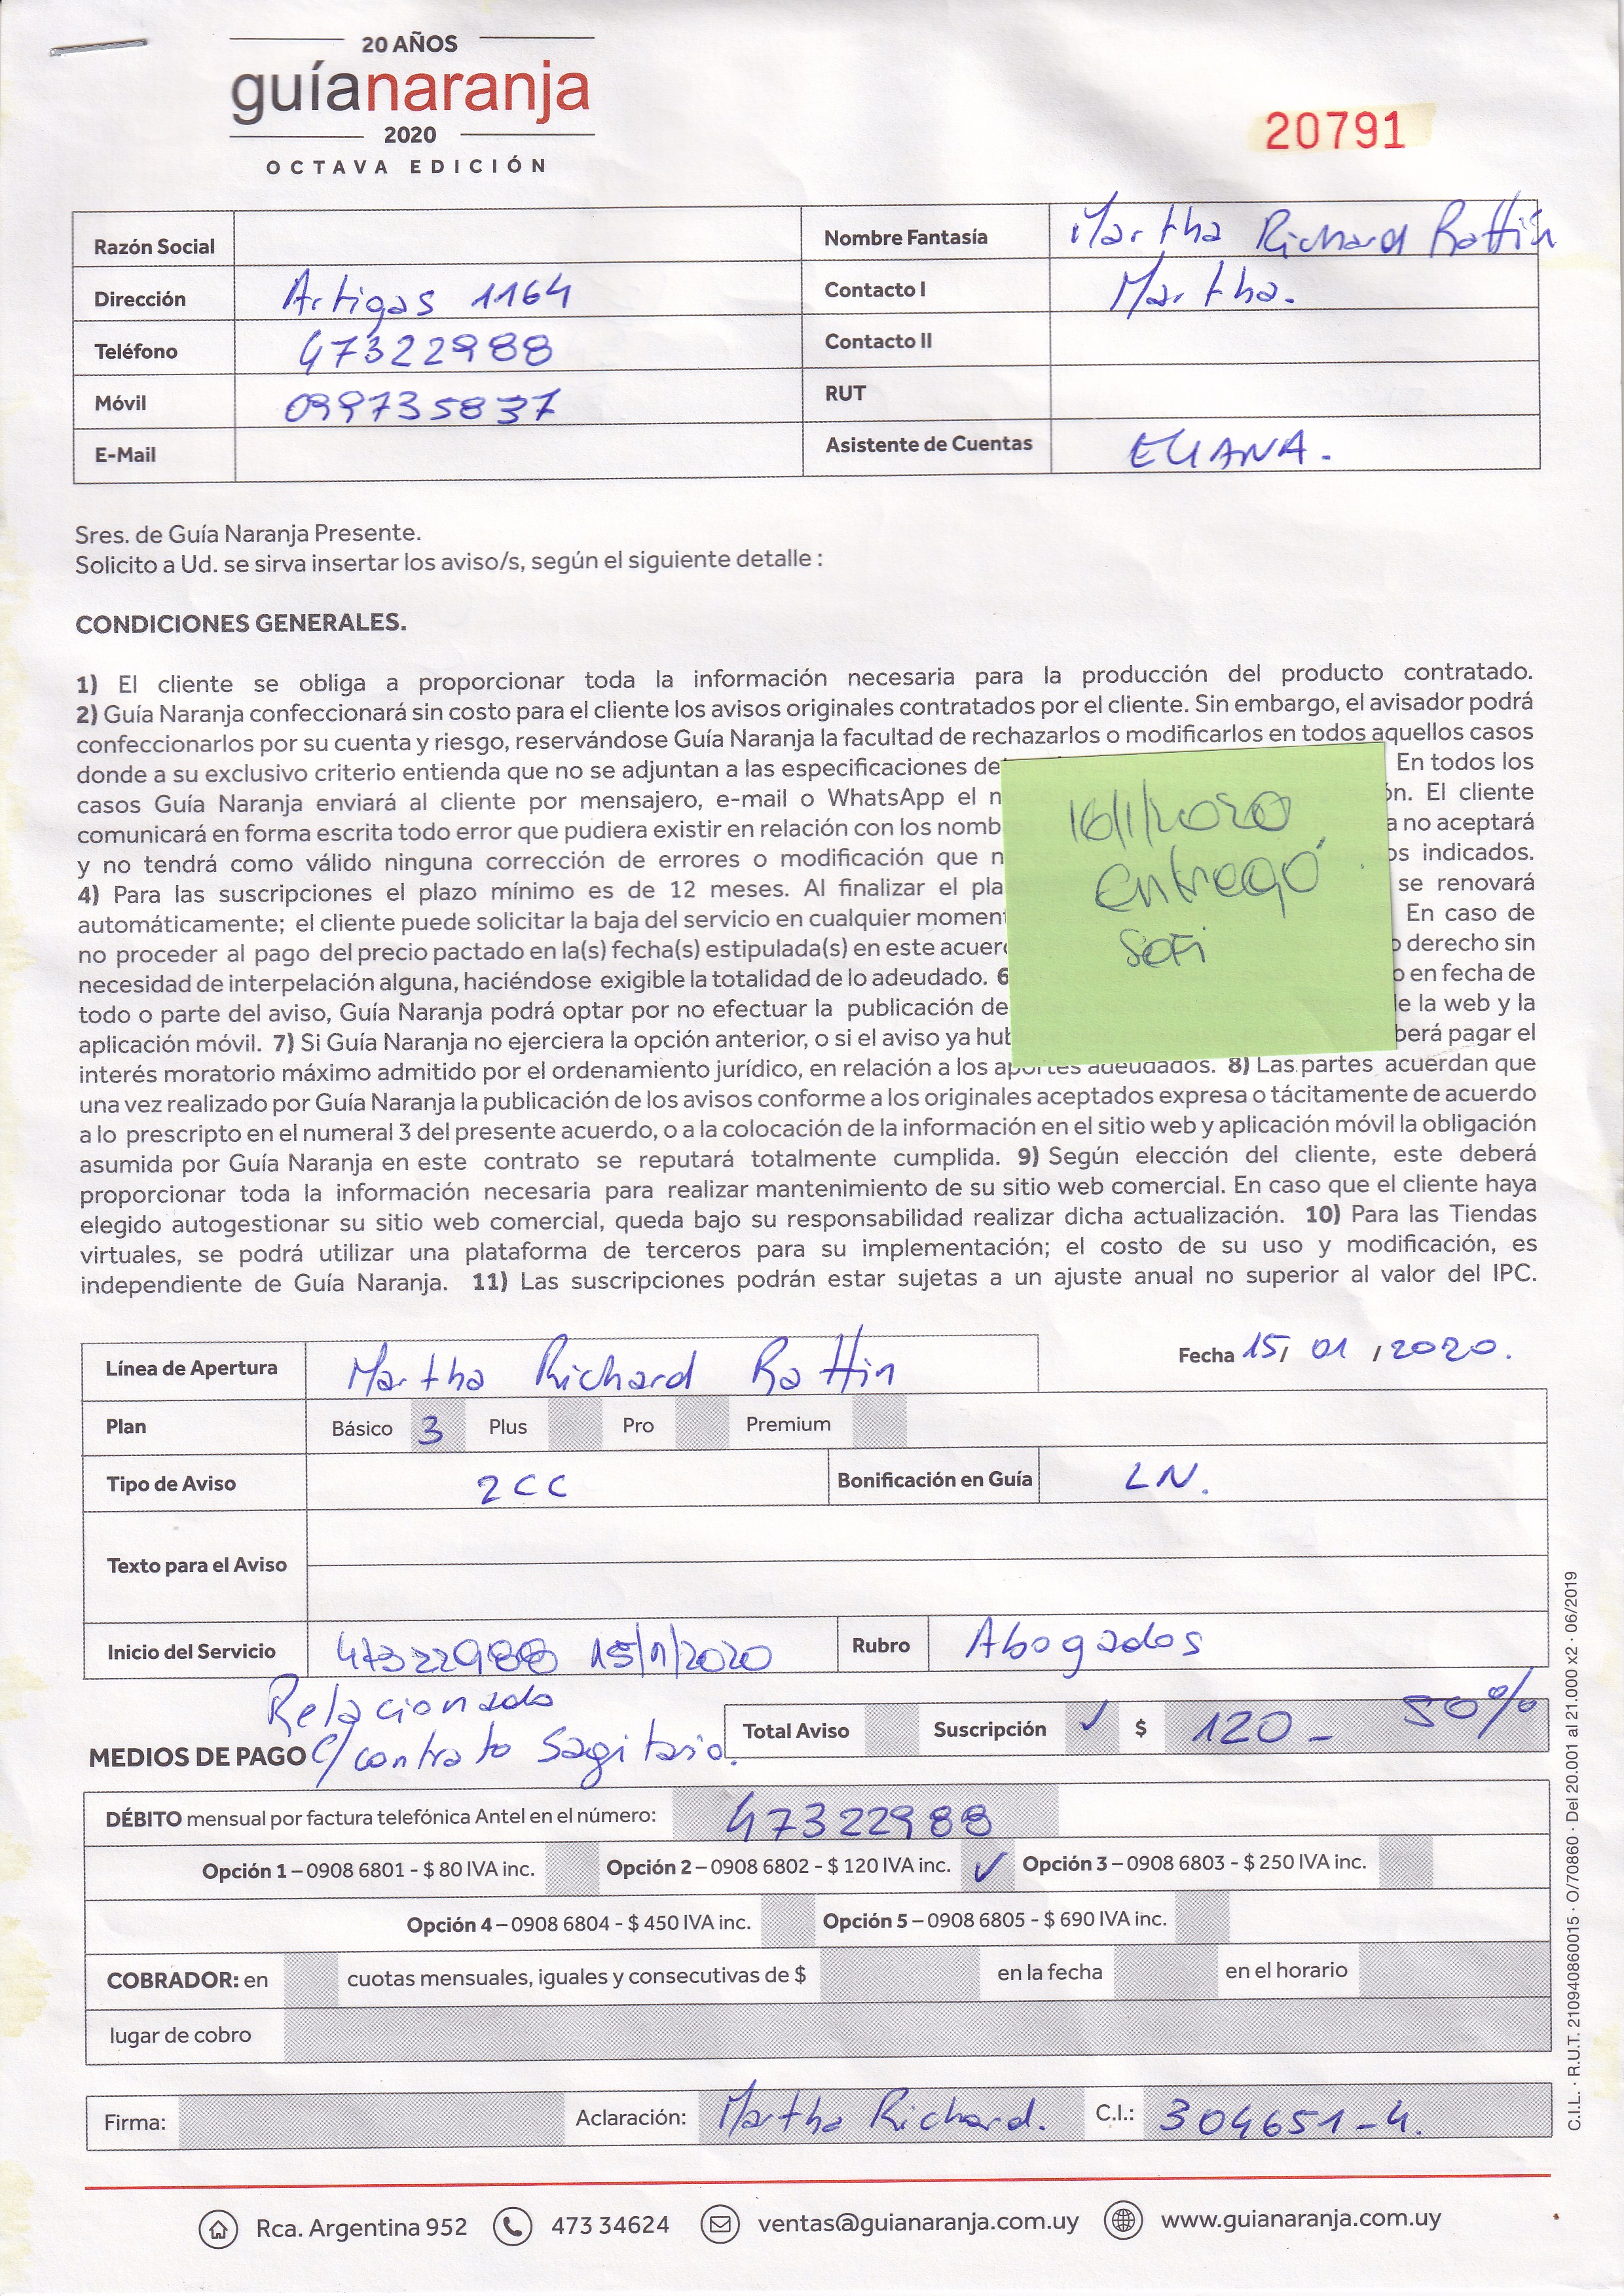 20 AÑOS
guíanaranja
2020
OCTAVA EDICIÓN
20791
Razón Social
Nombre Fantasía Martha Richard Rattin
Dirección Artigas 1164
Contacto I Martha.
Teléfono 47322988
Contacto II
Móvil 099735837
RUT
E-Mail
Asistente de Cuentas ELIANA.
Sres. de Guía Naranja Presente.
Solicito a Ud. se sirva insertar los aviso/s, según el siguiente detalle :
CONDICIONES GENERALES.
1) El cliente se obliga a proporcionar toda la información necesaria para la producción del producto contratado.
2) Guía Naranja confeccionará sin costo para el cliente los avisos originales contratados por el cliente. Sin embargo, el avisador podrá
confeccionarlos por su cuenta y riesgo, reservándose Guía Naranja la facultad de rechazarlos o modificarlos en todos aquellos casos
donde a su exclusivo criterio entienda que no se adjuntan a las especificaciones En todos los
casos Guía Naranja enviará al cliente por mensajero, e-mail o WhatsApp el El cliente
comunicará en forma escrita todo error que pudiera existir en relación con los no aceptará
y no tendrá como válido ninguna corrección de errores o modificación que indicados.
4) Para las suscripciones el plazo mínimo es de 12 meses. Al finalizar el se renovará
automáticamente; el cliente puede solicitar la baja del servicio en cualquier En caso de
no proceder al pago del precio pactado en la(s) fecha(s) estipulada(s) en este derecho sin
necesidad de interpelación alguna, haciéndose exigible la totalidad de lo adeudado. 6 en fecha de
todo o parte del aviso, Guía Naranja podrá optar por no efectuar la publicación la web y la
aplicación móvil. 7) Si Guía Naranja no ejerciera la opción anterior, o si el aviso ya pagar el
interés moratorio máximo admitido por el ordenamiento jurídico, en relación a los aportes adeudados. 8) Las partes acuerdan que
una vez realizado por Guía Naranja la publicación de los avisos conforme a los originales aceptados expresa o tácitamente de acuerdo
a lo prescripto en el numeral 3 del presente acuerdo, o a la colocación de la información en el sitio web y aplicación móvil la obligación
asumida por Guía Naranja en este contrato se reputará totalmente cumplida. 9) Según elección del cliente, este deberá
proporcionar toda la información necesaria para realizar mantenimiento de su sitio web comercial. En caso que el cliente haya
elegido autogestionar su sitio web comercial, queda bajo su responsabilidad realizar dicha actualización. 10) Para las Tiendas
virtuales, se podrá utilizar una plataforma de terceros para su implementación; el costo de su uso y modificación, es
independiente de Guía Naranja. 11) Las suscripciones podrán estar sujetas a un ajuste anual no superior al valor del IPC.
16/1/2020
Entregó
Sofi
Línea de Apertura Martha Richard Rattin
Fecha 15/ 01 / 2020.
Plan Básico 3 Plus Pro Premium
Tipo de Aviso 2CC Bonificación en Guía LN.
Texto para el Aviso
Inicio del Servicio 47322988 15/1/2020 Rubro Abogados
Relacionado
c/ contrato Sagitario.
Total Aviso Suscripción ✓ $ 120 - 50%
MEDIOS DE PAGO
DÉBITO mensual por factura telefónica Antel en el número: 47322988
Opción 1 – 0908 6801 - $ 80 IVA inc. Opción 2 – 0908 6802 - $ 120 IVA inc. ✓ Opción 3 – 0908 6803 - $ 250 IVA inc.
Opción 4 – 0908 6804 - $ 450 IVA inc. Opción 5 – 0908 6805 - $ 690 IVA inc.
COBRADOR: en cuotas mensuales, iguales y consecutivas de $ en la fecha en el horario
lugar de cobro
Firma: Aclaración: Martha Richard. C.I.: 304651-4.
C.I.L. · R.U.T. 210940860015 · O/70860 · Del 20.001 al 21.000 x2 · 06/2019
Rca. Argentina 952 473 34624 ventas@guianaranja.com.uy www.guianaranja.com.uy